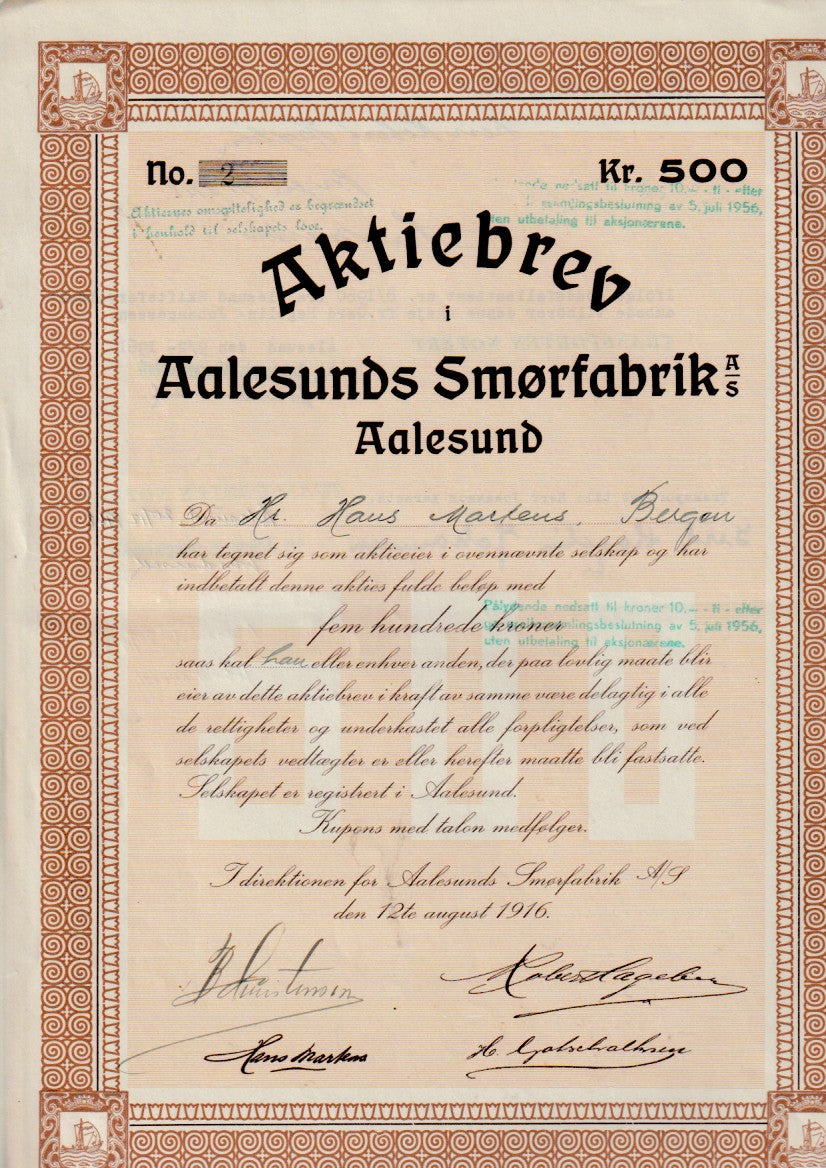 No. 2
Kr. 500
nedsatt til kroner 10.— - ti - etter
Aktiernes omsættelighed er begrændset
i henhold til selskapets love.
av 5. juli 1956,
uten utbetaling til aksjonærene.
Aktiebrev
i
Aalesunds Smørfabrik A/S
Aalesund
Da Hr. Hans Martens, Bergen
har tegnet sig som aktieeier i ovennævnte selskap og har
indbetalt denne akties fulde beløp med
Pålydende nedsatt til kroner 10.— - ti - etter
fem hundrede kroner
generalforsamlingsbeslutning av 5. juli 1956,
uten utbetaling til aksjonærene.
saas kal han eller enhver anden, der paa lovlig maate blir
eier av dette aktiebrev i kraft av samme være delagtig i alle
de rettigheter og underkastet alle forpligtelser, som ved
selskapets vedtægter er eller herefter maatte bli fastsatte.
Selskapet er registrert i Aalesund.
Kupons med talon medfølger.
I direktionen for Aalesunds Smørfabrik A/S
den 12te august 1916.
Hans Martens